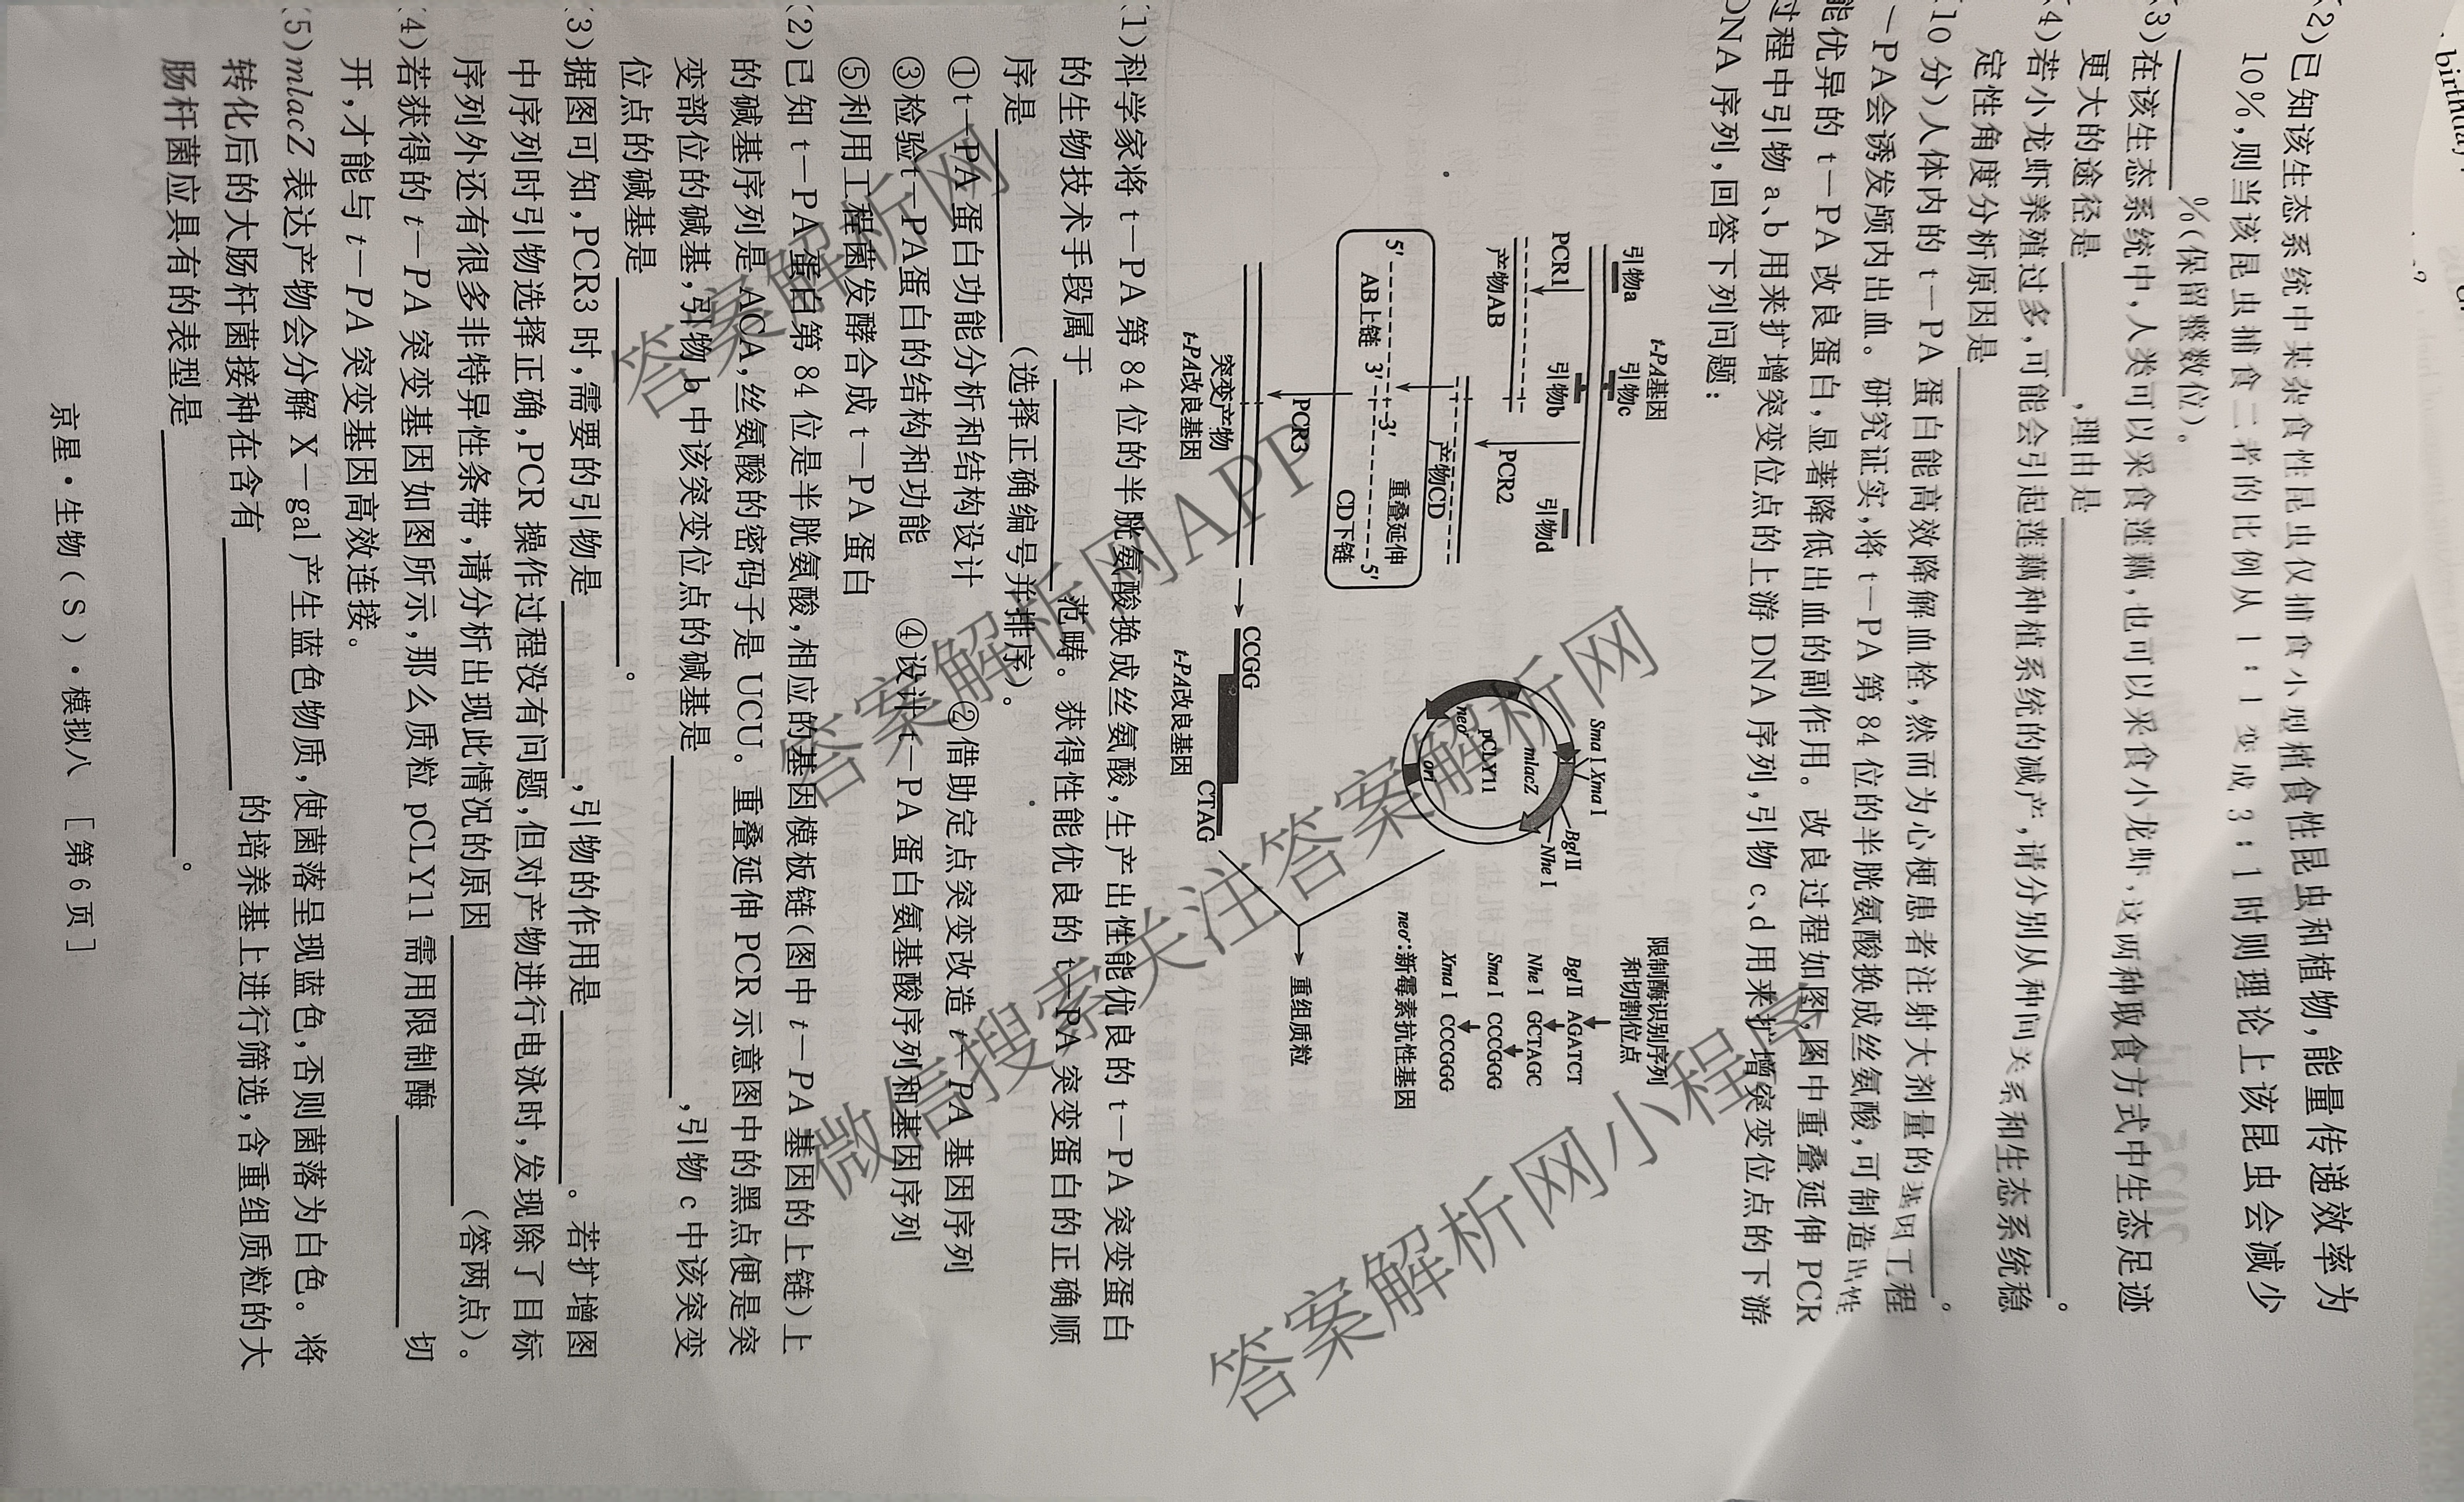 (2)已知该生态系统中某杂食性昆虫仅捕食小型植食性昆虫和植物,能量传递效率为
10%,则当该昆虫捕食二者的比例从1:1变成3:1时则理论上该昆虫会减少
%(保留整数位)。
(3)在该生态系统中,人类可以采食莲藕,也可以采食小龙虾,这两种取食方式中生态足迹
更大的途径是 ,理由是
。
(4)若小龙虾养殖过多,可能会引起莲藕种植系统的减产,请分别从种间关系和生态系统稳
定性角度分析原因是 。
10分)人体内的t-PA蛋白能高效降解血栓,然而为心梗患者注射大剂量的基因工程
-PA会诱发颅内出血。研究证实,将t-PA第84位的半胱氨酸换成丝氨酸,可制造出性
能优异的t-PA改良蛋白,显著降低出血的副作用。改良过程如图,图中重叠延伸PCR
过程中引物a、b用来扩增突变位点的上游DNA序列,引物c、d用来扩增突变位点的下游
DNA序列,回答下列问题:
t-PA基因
引物a
引物c
引物b
引物d
PCR1
PCR2
产物AB
产物CD
5′
AB上链
3′
3′
重叠延伸
CD下链
5′
PCR3
突变产物
t-PA改良基因
CCGG
CTAG
t-PA改良基因
Sma I
Xma I
Bgl II
Nhe I
mlacZ
pCLY11
neoʳ
ori
限制酶识别序列
和切割位点
Bgl II AGATCT
Nhe I GCTAGC
Sma I CCCGGG
Xma I CCCGGG
neoʳ:新霉素抗性基因
重组质粒
(1)科学家将t-PA第84位的半胱氨酸换成丝氨酸,生产出性能优良的t-PA突变蛋白
的生物技术手段属于 范畴。获得性能优良的t-PA突变蛋白的正确顺
序是 (选择正确编号并排序)。
①t-PA蛋白功能分析和结构设计 ②借助定点突变改造t-PA基因序列
③检验t-PA蛋白的结构和功能 ④设计t-PA蛋白氨基酸序列和基因序列
⑤利用工程菌发酵合成t-PA蛋白
(2)已知t-PA蛋白第84位是半胱氨酸,相应的基因模板链(图中t-PA基因的上链)上
的碱基序列是ACA,丝氨酸的密码子是UCU。重叠延伸PCR示意图中的黑点便是突
变部位的碱基,引物b中该突变位点的碱基是 ,引物c中该突变
位点的碱基是 。
(3)据图可知,PCR3时,需要的引物是 ,引物的作用是 。若扩增图
中序列时引物选择正确,PCR操作过程没有问题,但对产物进行电泳时,发现除了目标
序列外还有很多非特异性条带,请分析出现此情况的原因 (答两点)。
(4)若获得的t-PA突变基因如图所示,那么质粒pCLY11需用限制酶 切
开,才能与t-PA突变基因高效连接。
(5)mlacZ表达产物会分解X-gal产生蓝色物质,使菌落呈现蓝色,否则菌落为白色。将
转化后的大肠杆菌接种在含有 的培养基上进行筛选,含重组质粒的大
肠杆菌应具有的表型是 。
京星·生物(S)·模拟八 [第6页]
birthday
答案解析网
答案解析网APP
微信搜索关注答案解析网
答案解析网小程序